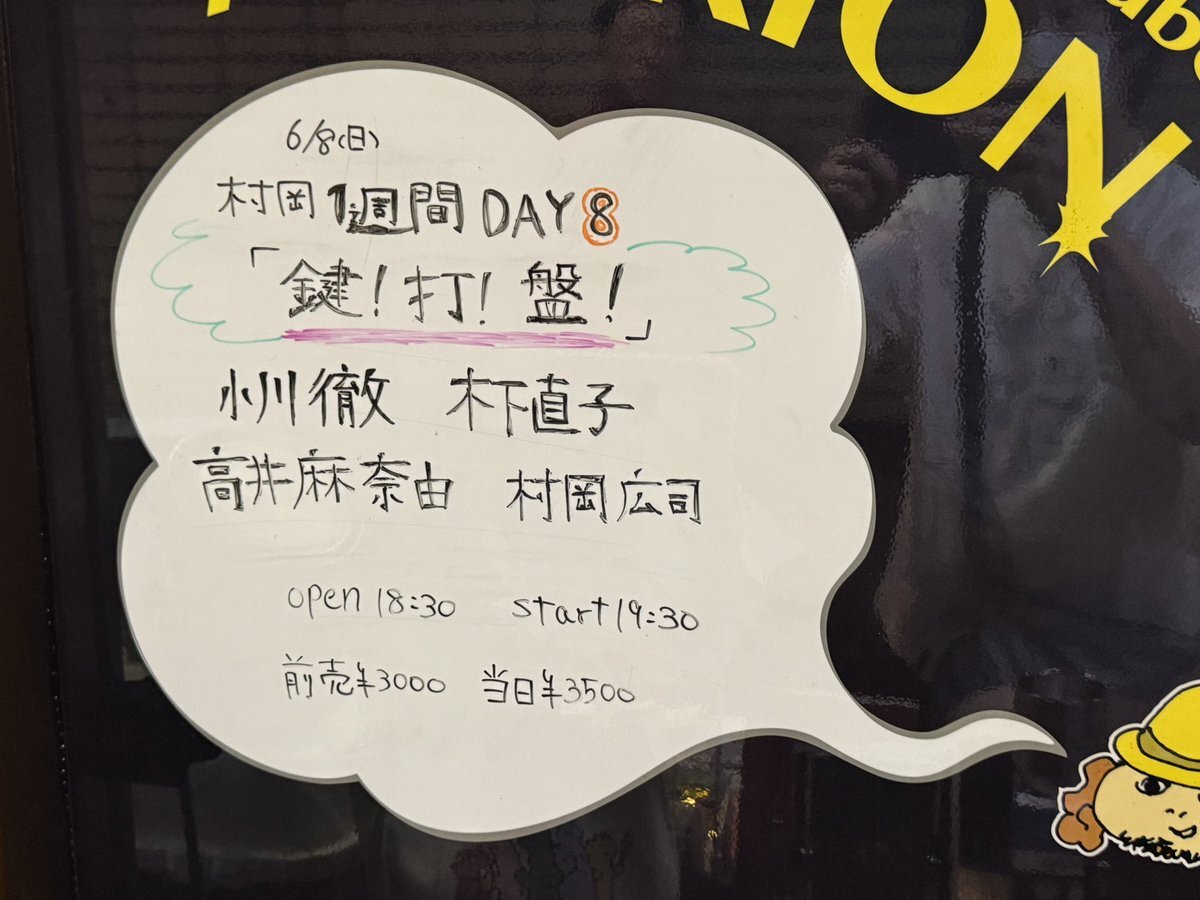 6/8(日)
村岡1週間 DAY 8
「鍵!打!盤!」
小川徹 木下直子
高井麻奈由 村岡広司
open 18:30 start 19:30
前売¥3000 当日¥3500